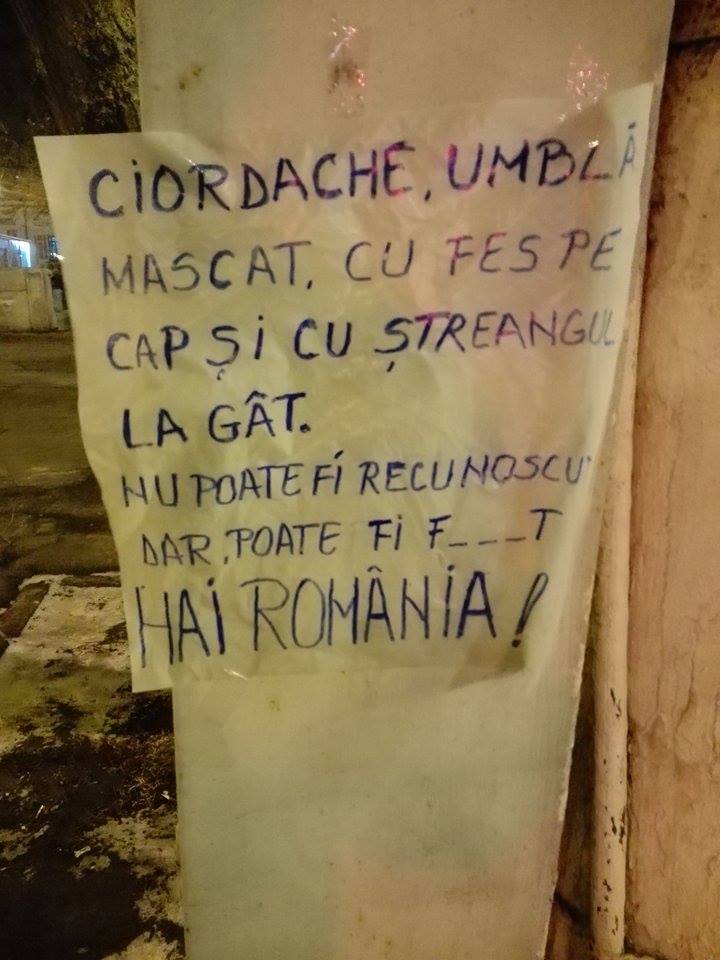 CIORDACHE, UMBLĂ
MASCAT, CU FES PE
CAP ȘI CU ȘTREANGUL
LA GÂT.
NU POATE FI RECUNOSCU
DAR, POATE FI F___T
HAI ROMÂNIA!